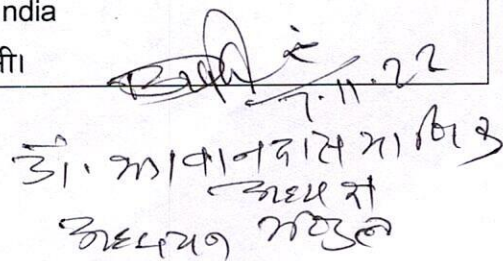 ndia
ती।
7.11.22
डॉ. भगवानदास माणिक
अध्यक्ष
अध्ययन मण्डल